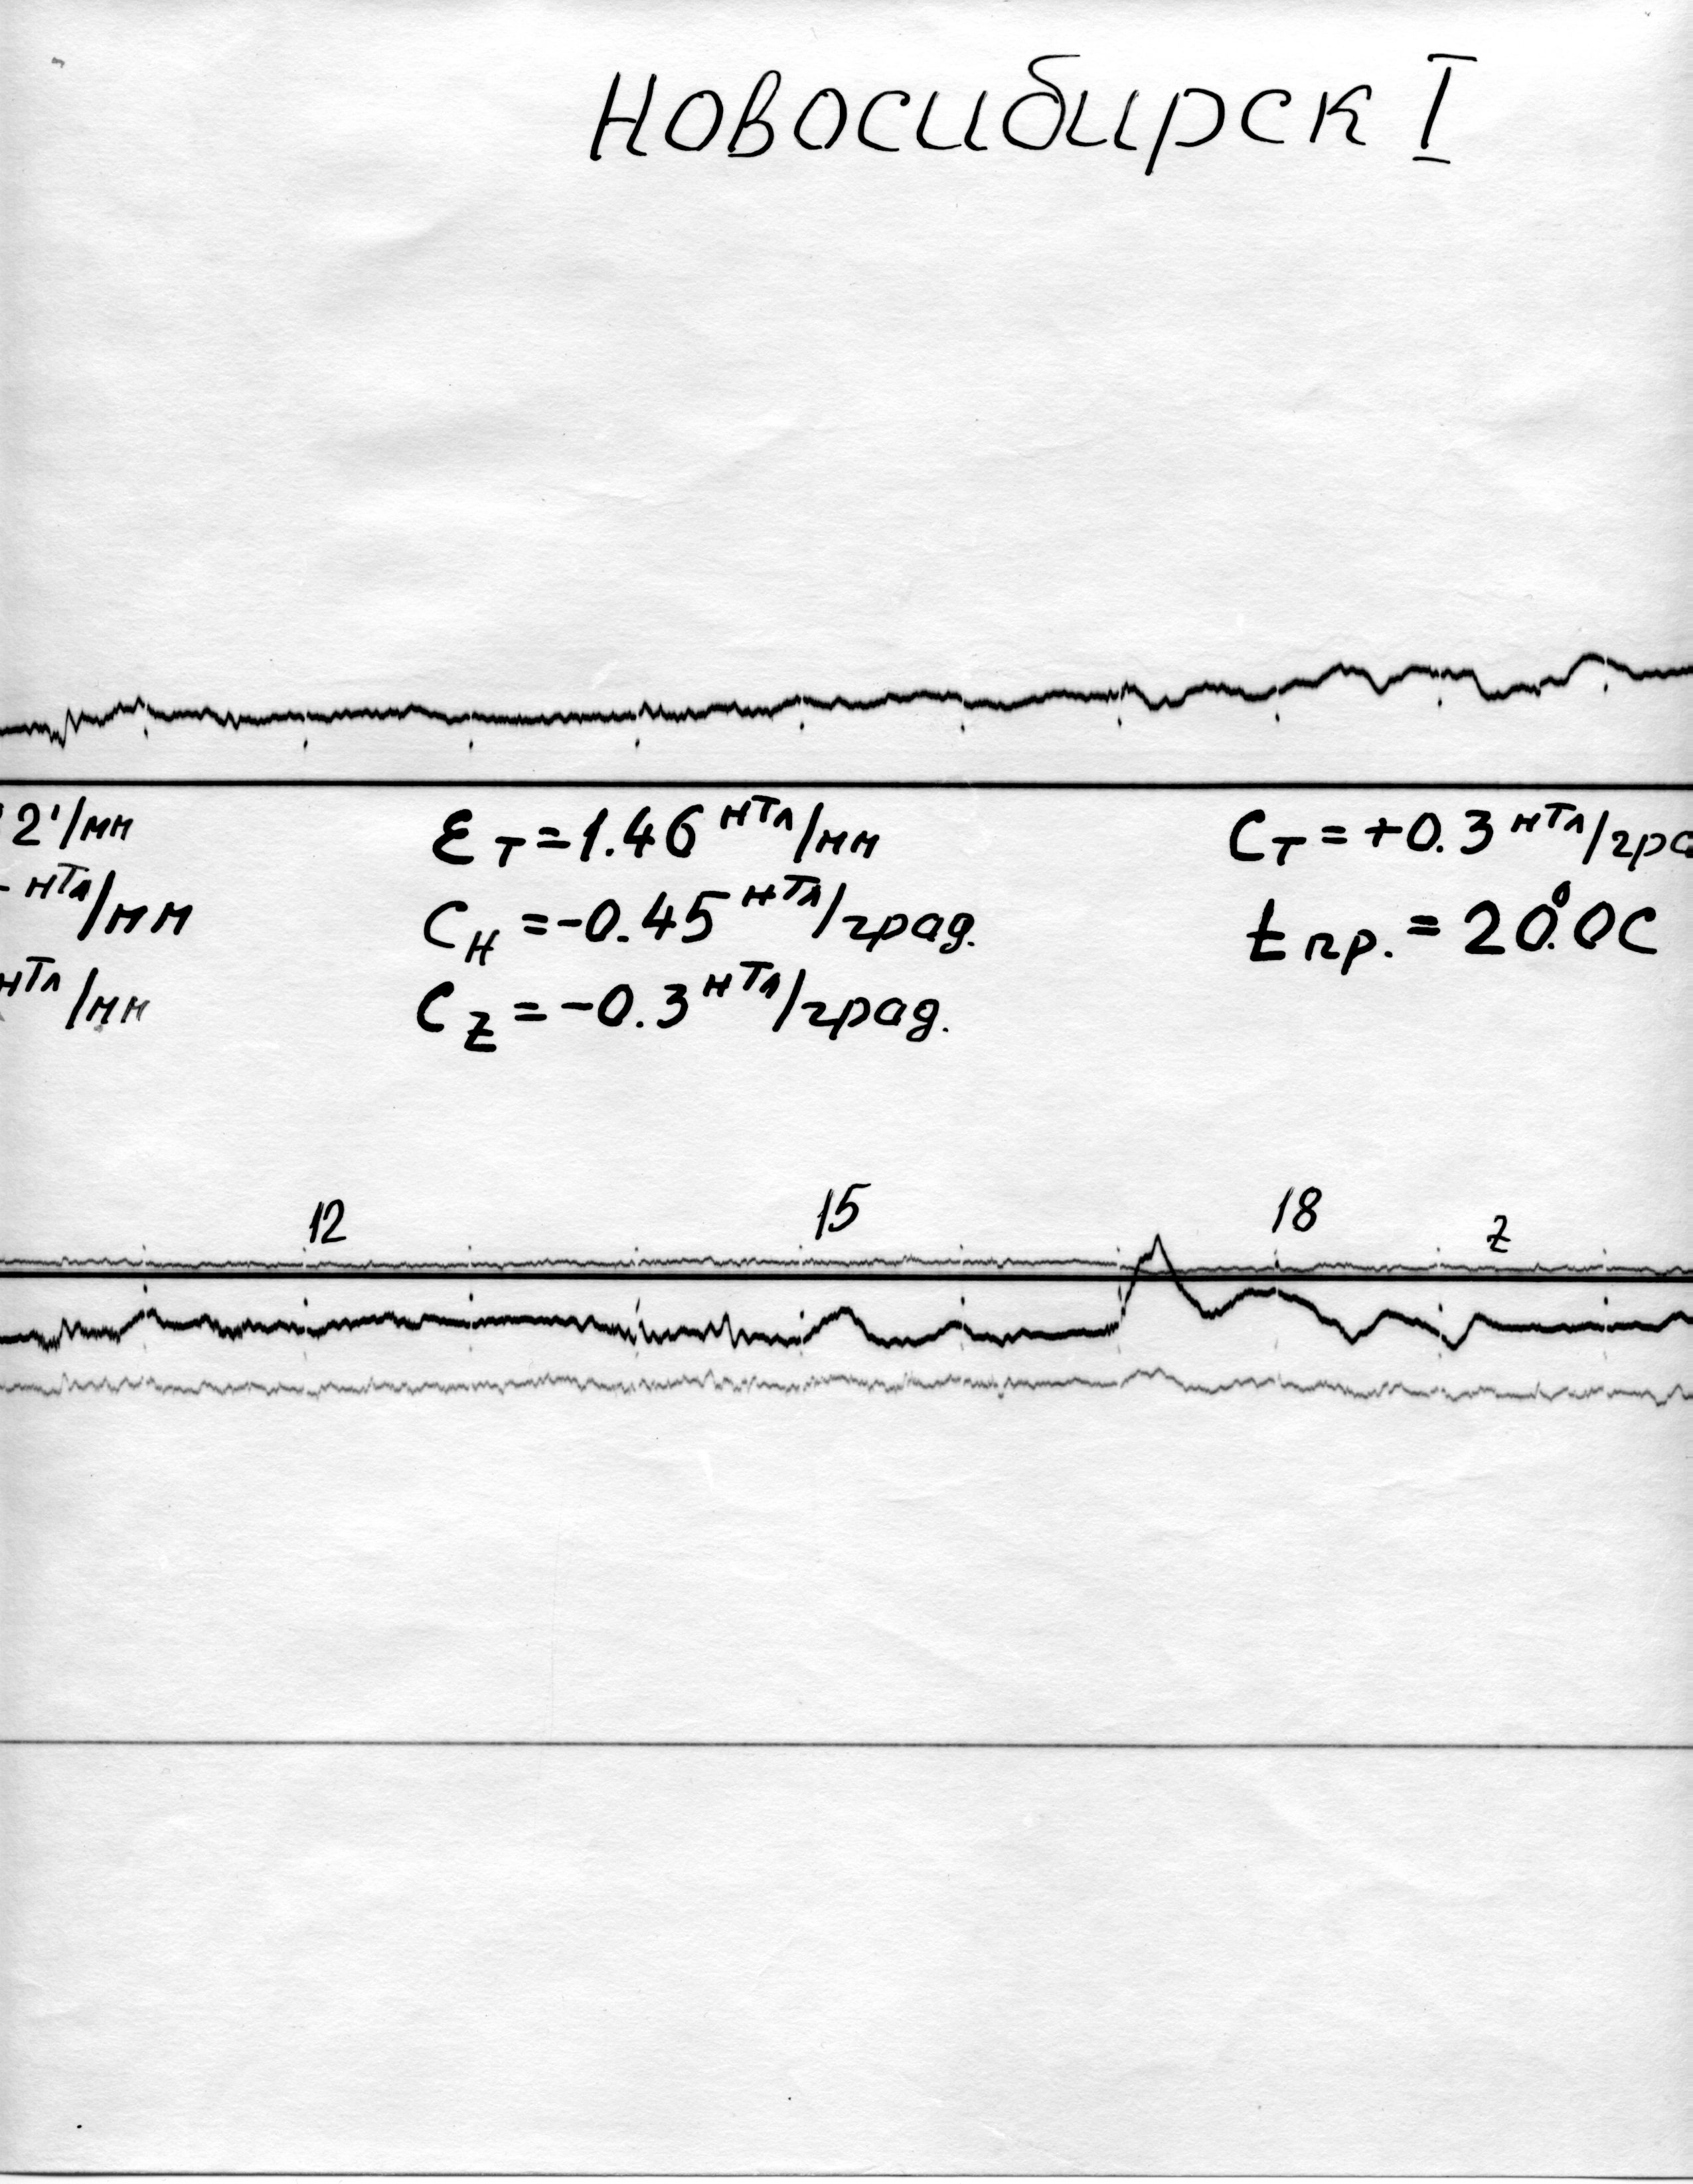 Новосибирск I
2'/мм ε_T = 1.46 нТл/мм C_T = +0.3 нТл/гра
нТл/мм C_H = -0.45 нТл/град. t пр. = 20°.0С
нТл/мм C_Z = -0.3 нТл/град.
12 15 18 Z